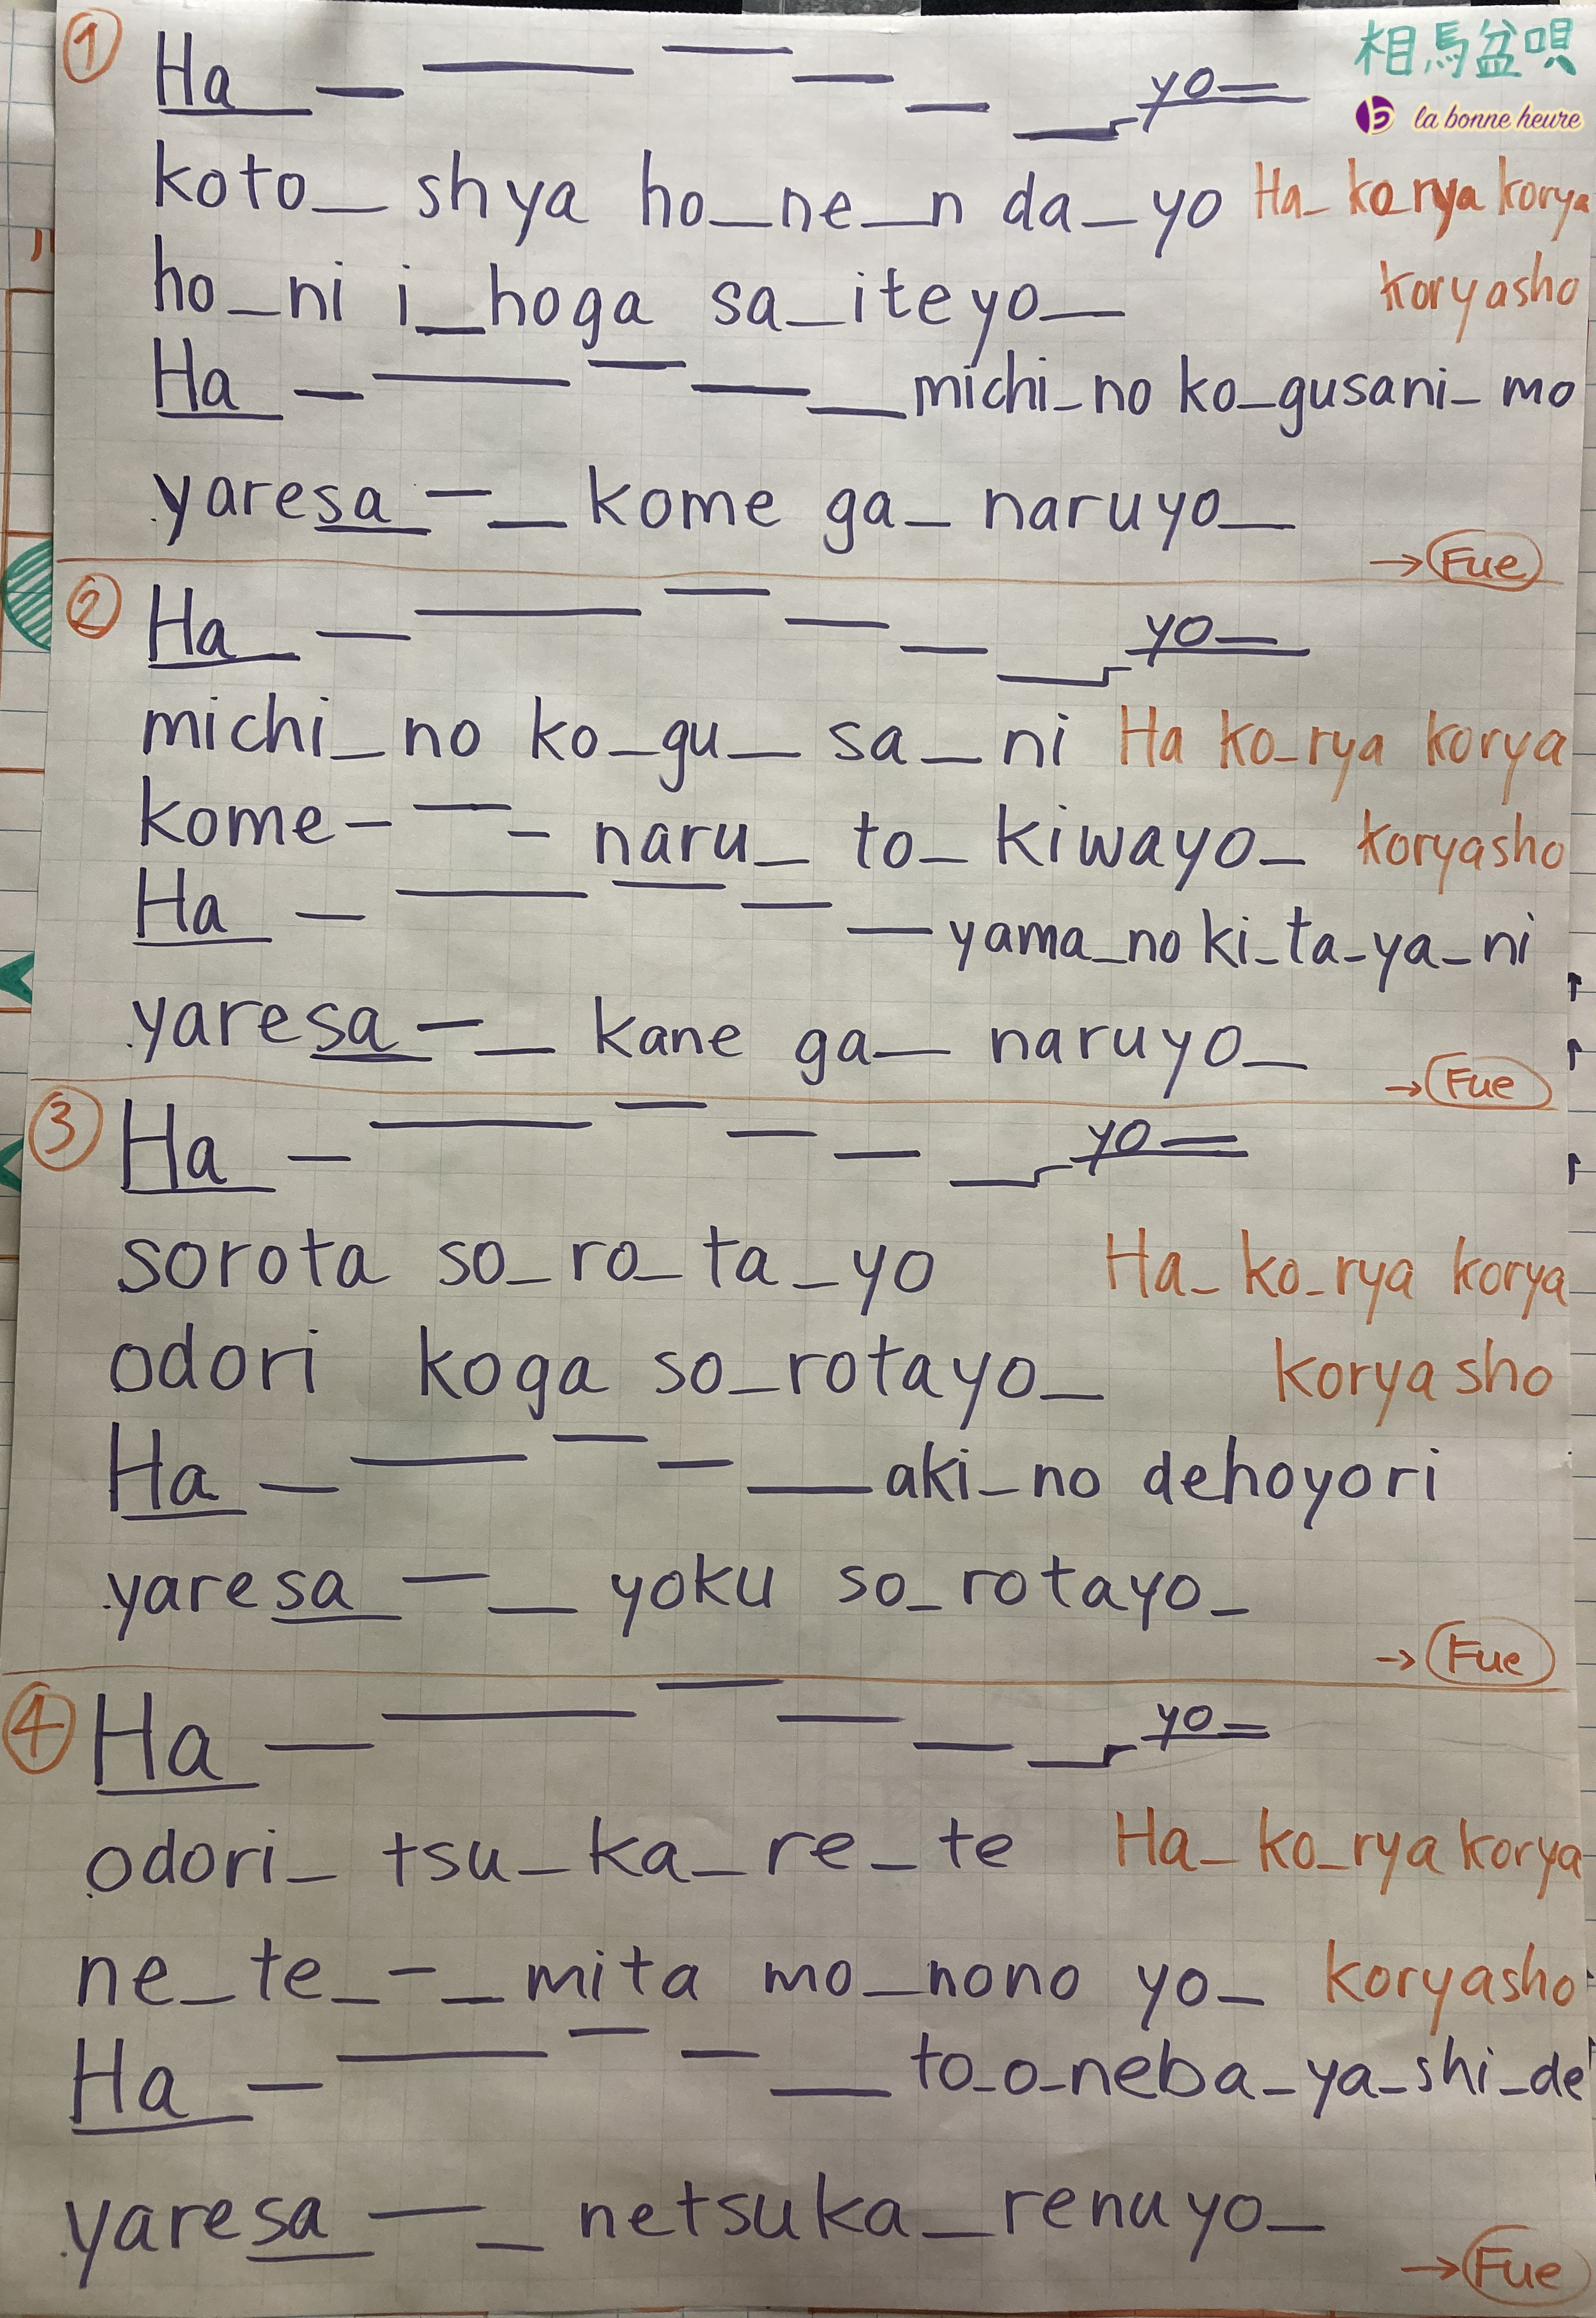 ① Ha_ — — — — — _ yo—
相馬盆唄
la bonne heure
koto_ shya ho_ne_n da_yo Ha_ ko_rya korya
ho_ni i_hoga sa_iteyo_ koryasho
Ha_ — — — — _ michi_no ko_gusani_mo
yaresa — _ kome ga_ naruyo_
→ Fue
② Ha_ — — — — — _ yo—
michi_no ko_gu_ sa_ni Ha ko_rya korya
kome — — — naru_ to_ kiwayo_ koryasho
Ha_ — — — — — yama_no ki_ta_ya_ni
yaresa — _ kane ga_ naruyo_
→ Fue
③ Ha_ — — — — — _ yo—
sorota so_ro_ta_yo Ha_ ko_rya korya
odori koga so_rotayo_ koryasho
Ha_ — — — — _ aki_no dehoyori
yaresa — _ yoku so_rotayo_
→ Fue
④ Ha_ — — — — — _ yo—
odori_ tsu_ka_re_te Ha_ ko_rya korya
ne_te_ — _ mita mo_nono yo_ koryasho
Ha_ — — — — _ to_o_neba_ya_shi_de
yaresa — _ netsuka_renuyo_
→ Fue